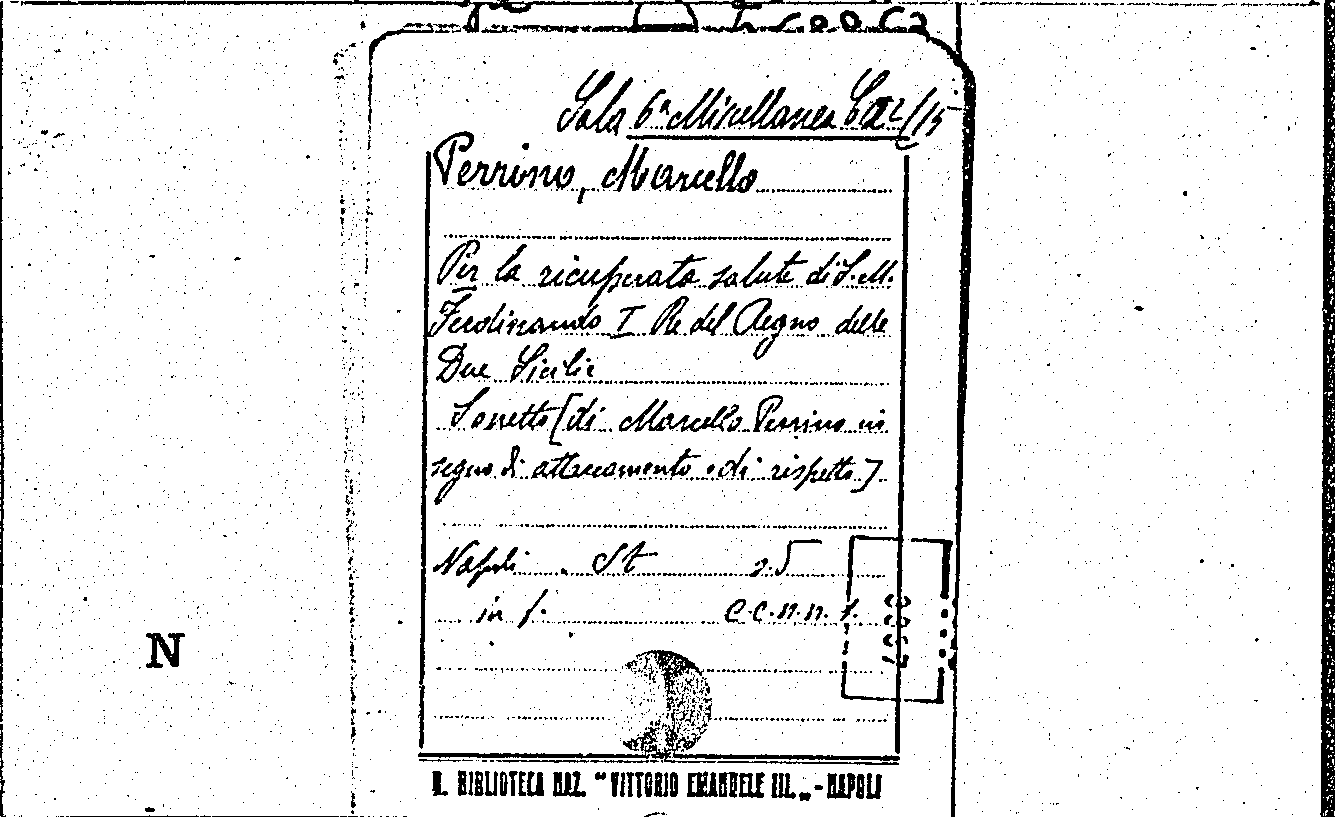 Sala 6ª Miscellanea
Perrino, Marcello
Per la ricuperata salute di S.M.
Ferdinando I Re del Regno delle
Due Sicilie
Sonetto [di Marcello Perrino in
segno di attaccamento e di rispetto]
Napoli. St
in f. c.c.n.n. 1.
N
R. BIBLIOTECA NAZ. "VITTORIO EMANUELE III.„ - NAPOLI